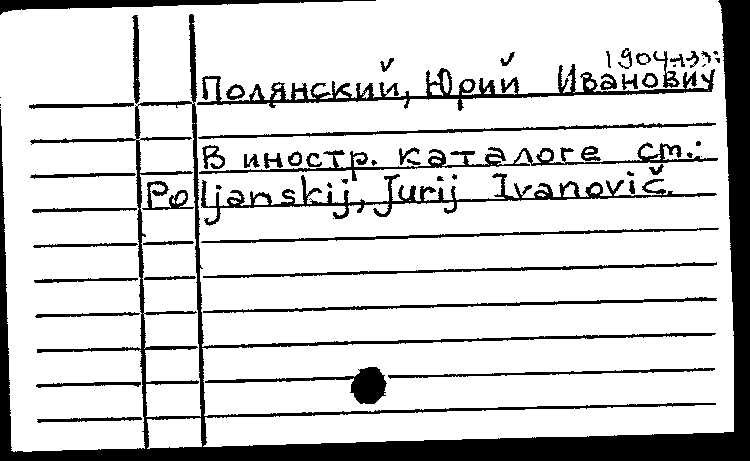 Полянский, Юрий Иванович
В иностр. каталоге см.:
Poljanskij, Jurij Ivanovič.